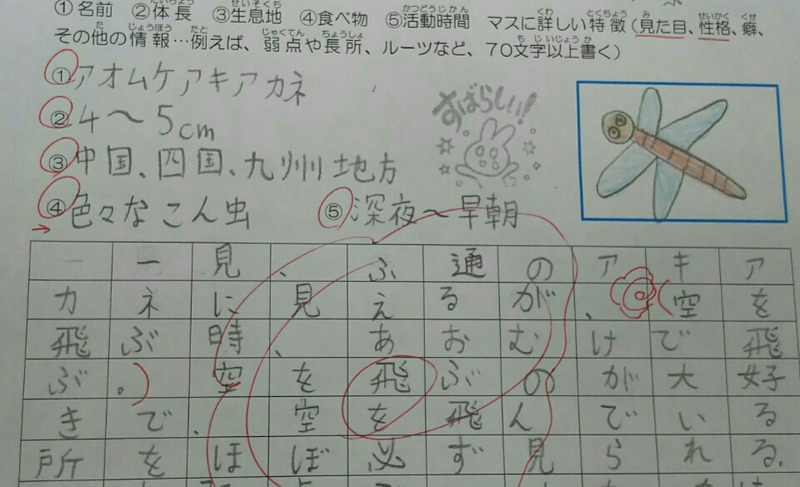 ①名前 ②体長 ③生息地 ④食べ物 ⑤活動時間 マスに詳しい特徴(見た目、性格、癖、
その他の情報…例えば、弱点や長所、ルーツなど、70文字以上書く)
①アオムケアキアカネ
②4〜5cm
すばらしい!
③中国、四国、九州地方
④色々なこん虫
⑤深夜〜早朝
一見、ふ通のアキア
カネに見えるが、(空を
飛ぶ時、あおむけで飛
ぶ。)空を飛ぶのが大好
きで、空を飛んでいる
所をほぼ必ず見られる。